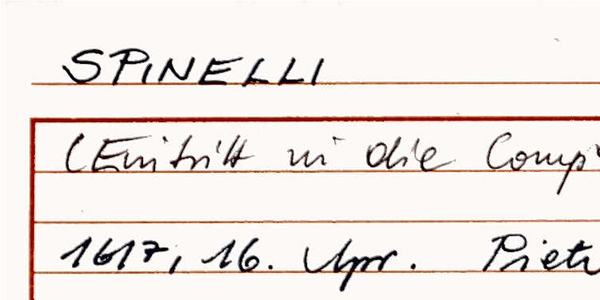 SPINELLI
(Eintritt in die Comp
1617, 16. Apr. Piet